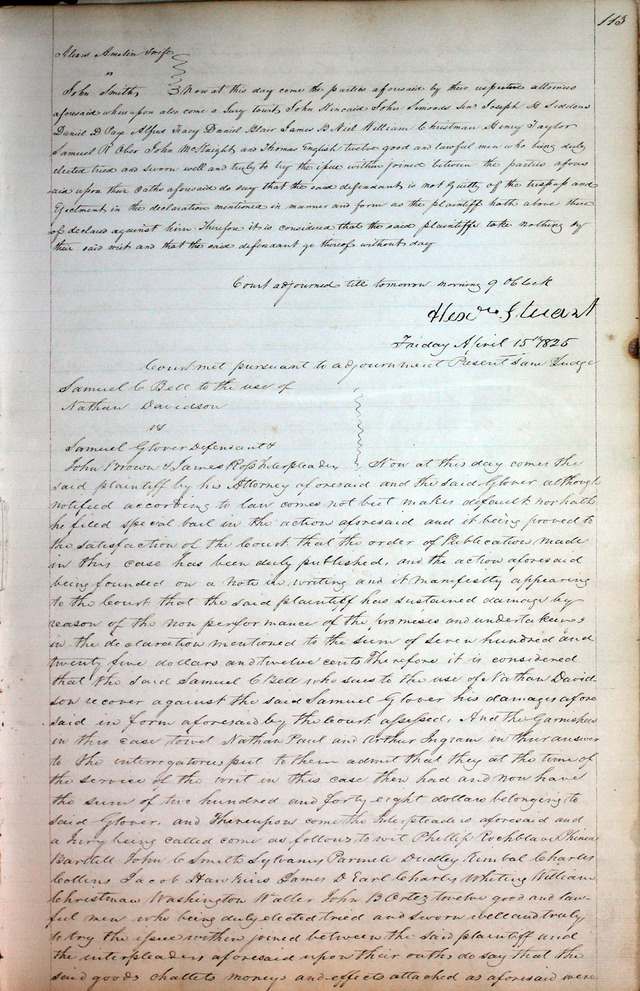 113
Alexis Amelin
"
John Smith } Now at this day come the parties aforesaid by their respective attornies
aforesaid whereupon also come a Jury towit, John Kincaid John Simonds Senr Joseph H Siddons
Daniel D Page Alfred Tracy Daniel Blair James B Neil William Christman Henry Taylor
Samuel R Ober John McKnight and Thomas English twelve good and lawful men who being duly
elected tried and sworn well and truly to try the issue within joined between the parties afore
said upon their oaths aforesaid do say that the said defendant is not Guilty of the trespass and
Ejectment in the declaration mentioned in manner and form as the plaintiff hath above there
of declared against him Therefore it is considered that the said plaintiffs take nothing by
their said writ and that the said defendant go thereof without day
Court adjourned till tomorrow morning 9 OClock
Alexr. Stuart
Friday April 15th 1825
Court met pursuant to adjournment Present same Judge
Samuel C Bell to the use of
Nathan Davidson
vs
Samuel Glover Defendant &
John Brown & James Ross Interpleader } Now at this day comes the
said plaintiff by his Attorney aforesaid and the said Glover although
notified according to law comes not but makes default nor hath
he filed special bail in the action aforesaid and it being proved to
the satisfaction of the Court that the order of Publication made
in this case has been duly published, and the action aforesaid
being founded on a note in writing and it manifestly appearing
to the Court that the said plaintiff has sustained damage by
reason of the non performance of the promises and undertakings
in the declaration mentioned to the sum of seven hundred and
twenty five dollars and twelve cents Therefore it is considered
that the said Samuel C Bell who sues to the use of Nathan David
son recover against the said Samuel Glover his damages afore
said in form aforesaid by the Court assessed, And the Garnishees
in this case towit Nathan Paul and Arthur Ingram in their answer
to the interrogatories put to them admit that they at the time of
the service of the writ in this case then had and now have
the sum of two hundred and forty eight dollars belonging to
said Glover, and Thereupon come the Interpleaders aforesaid and
a Jury being called come as follows to wit Phillip Rochblave Phineas
Bartlett John C Smith Sylvanus Parmele Dudley Kimbal Charles
Collins Jacob Hawkins James D Earl Charles Whiting William
Christman Washington Waller John B Ortez twelve good and law-
ful men who being duly elected tried and sworn well and truly
to try the issue within joined between the said plaintiff and
the interpleaders aforesaid upon their oaths do say that the
said goods chattels moneys and effects attached as aforesaid were